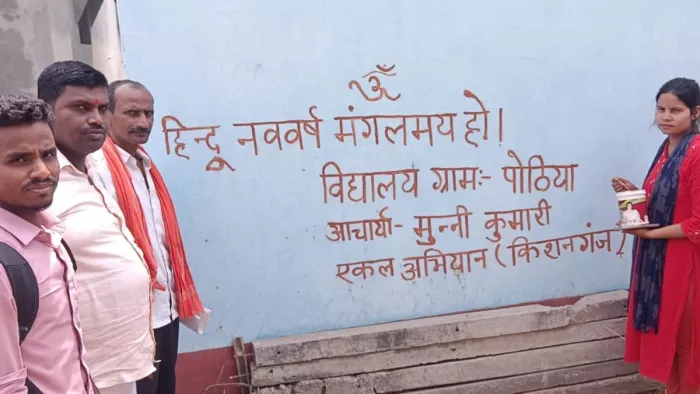 ॐ
हिन्दू नववर्ष मंगलमय हो।
विद्यालय ग्रामः- पोठिया
आचार्या- मुन्नी कुमारी
एकल अभियान (किशनगंज)